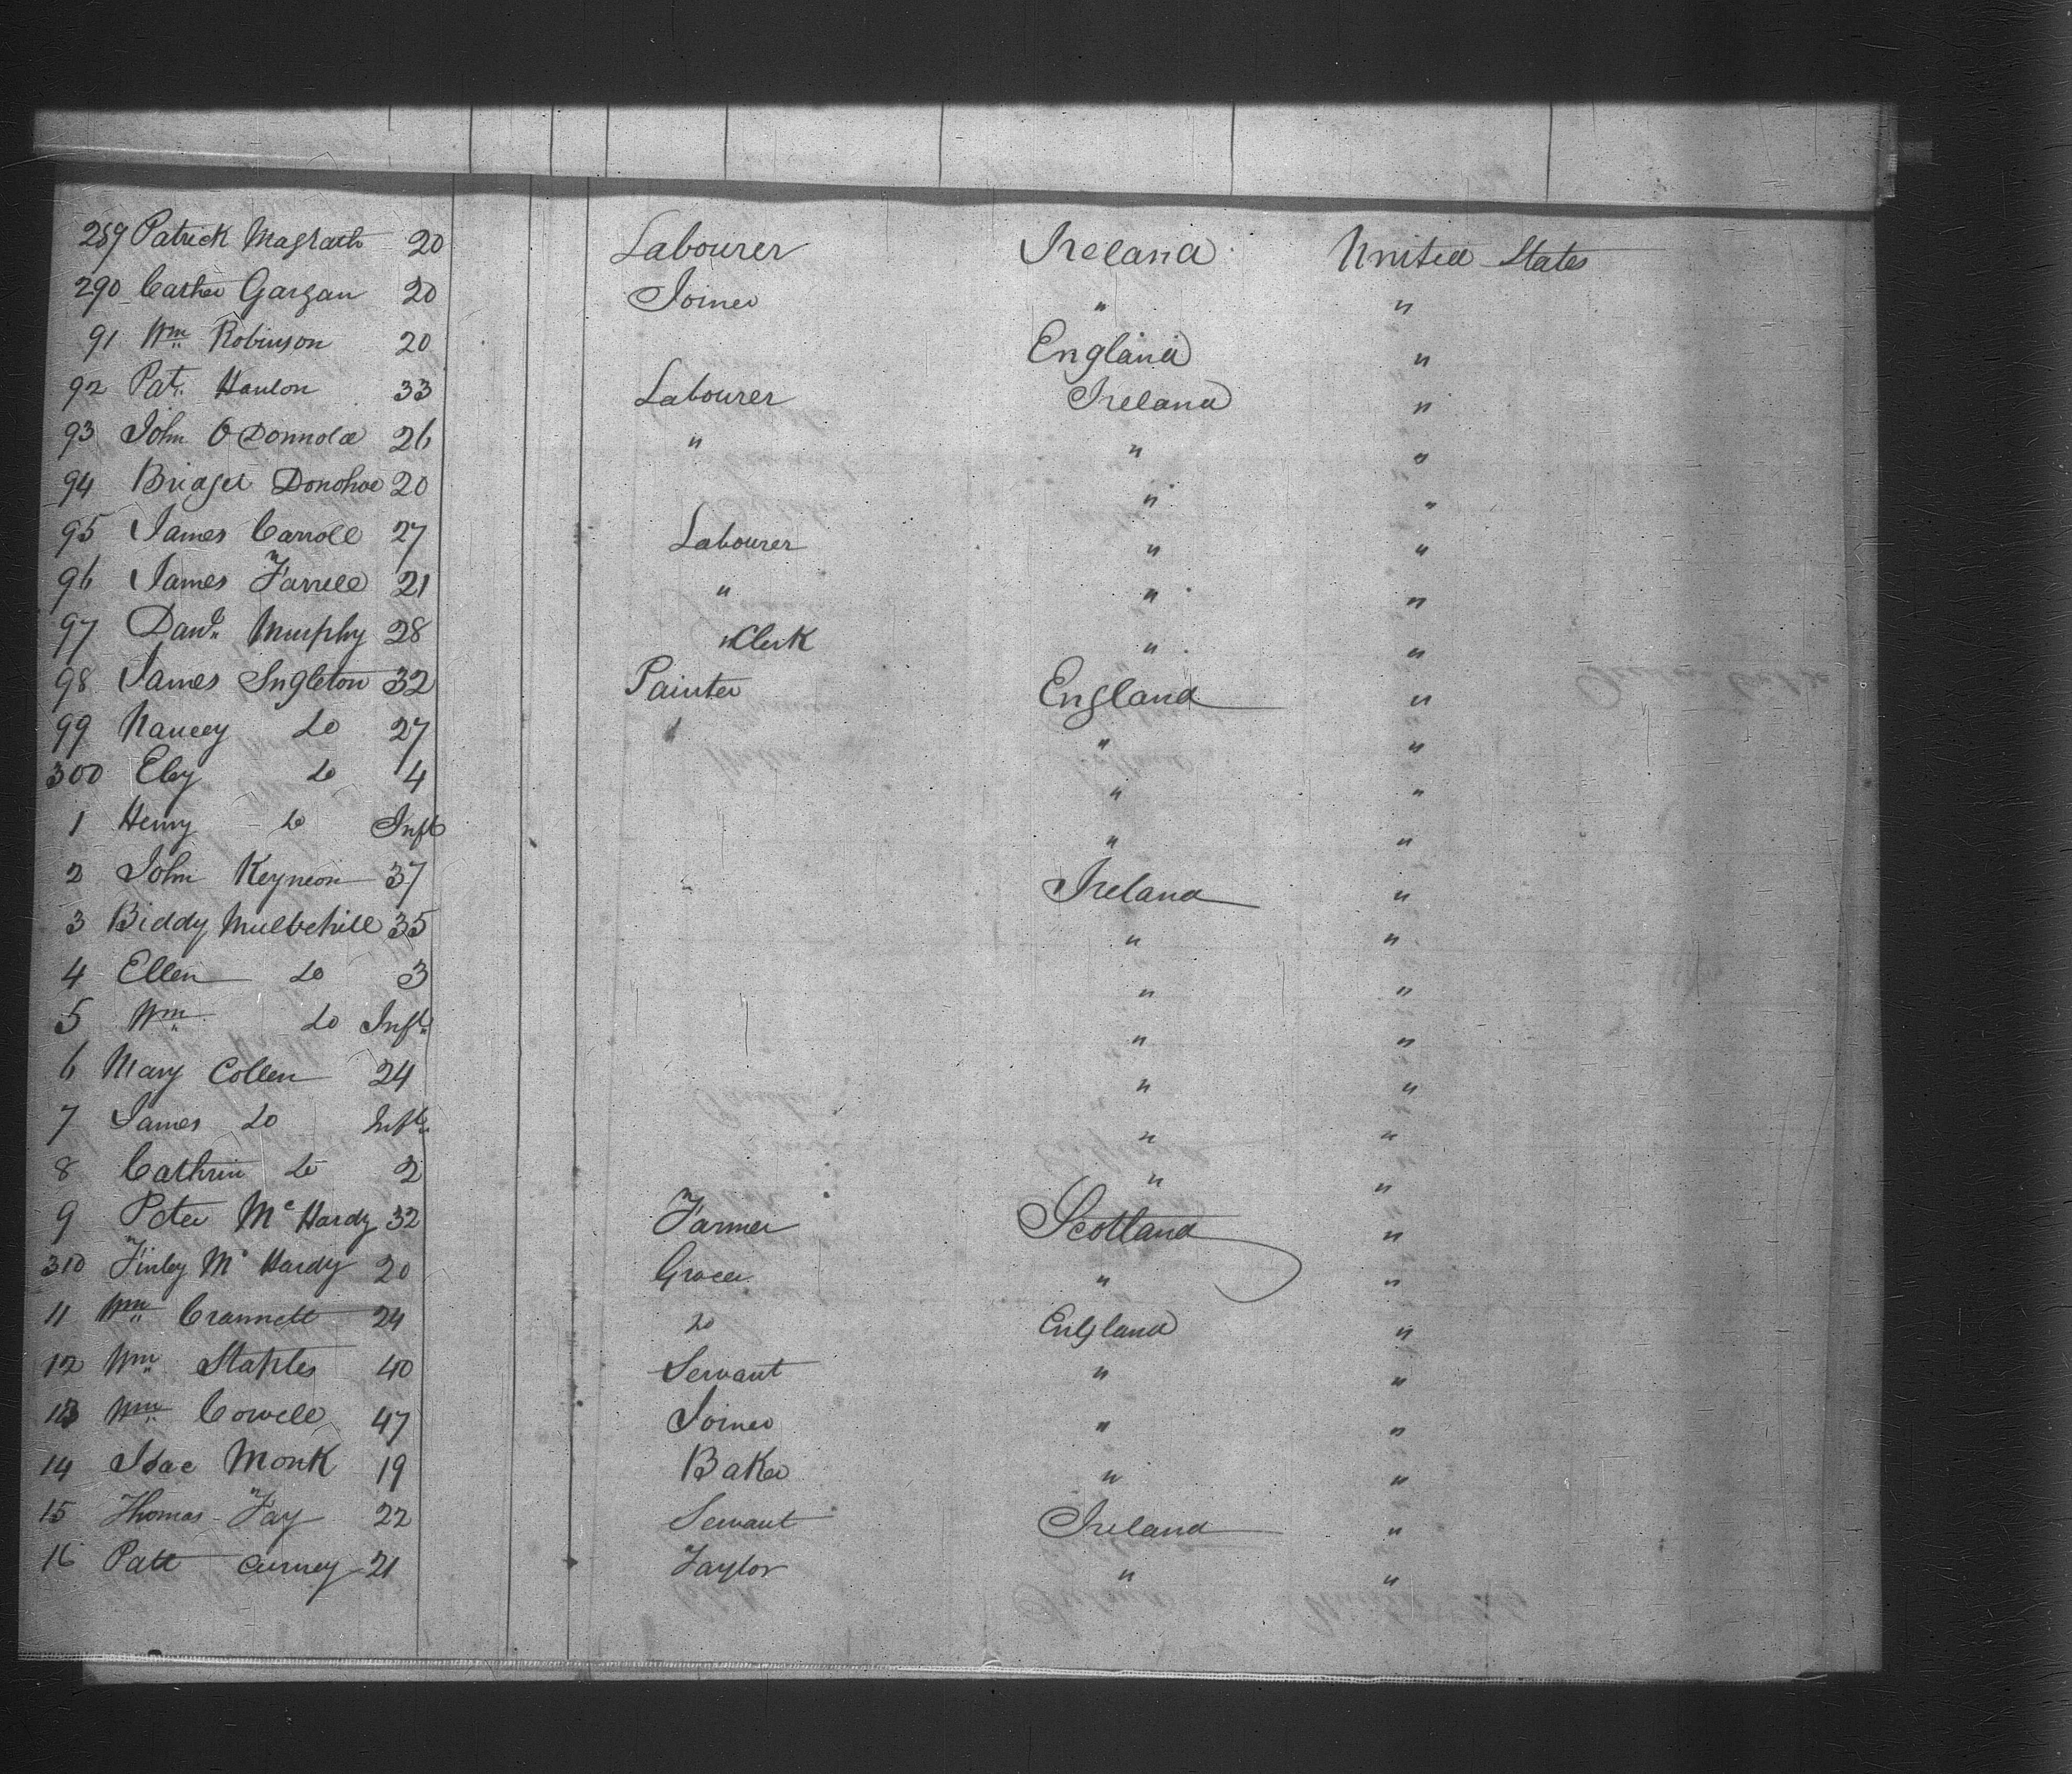 289 Patrick Magrath 20 Labourer Ireland United States
290 Cather Gargan 20 Joiner " "
91 Wm Robinson 20 England "
92 Pat. Hanlon 33 Labourer Ireland "
93 John O Donnold 26 " " "
94 Bridget Donohoe 20 " "
95 James Carroll 27 Labourer " "
96 James Farrell 21 " " "
97 Danl. Murphy 28 " Clerk " "
98 James Singleton 32 Painter England "
99 Nancey do 27 " "
300 Eley do 4 " "
1 Henry do Inft " "
2 John Keyneon 37 Ireland "
3 Biddy Mulvehill 35 " "
4 Ellen do 3 " "
5 Wm do Inft. " "
6 Mary Collen 24 " "
7 James do Inft. " "
8 Cathrin do 2 " "
9 Peter Mc Hardy 32 Farmer Scotland "
310 Finley Mc Hardy 20 Grocer " "
11 Wm Crannett 24 do England "
12 Wm Staples 40 Servant " "
13 Wm Cowell 47 Joiner " "
14 Isac Monk 19 Baker " "
15 Thomas Fay 22 Servant Ireland "
16 Patt Curney 21 Taylor " "